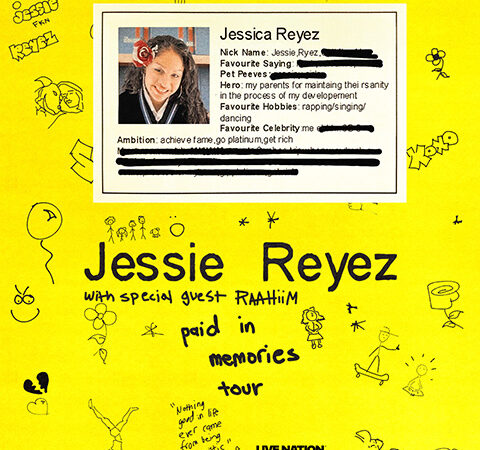 Jessie
FKN
REYEZ
Jessica Reyez
Nick Name: Jessie,Ryez,
Favourite Saying:
Pet Peeves:
Hero: my parents for maintaing thei rsanity
in the process of my developement
Favourite Hobbies: rapping/singing/
dancing
Favourite Celebrity:me
Ambition: achieve fame,go platinum,get rich
Jessie Reyez
with special guest RAAHiiM
paid in
memories
tour
"Nothing
good in life
ever came
from being
LIVE NATION